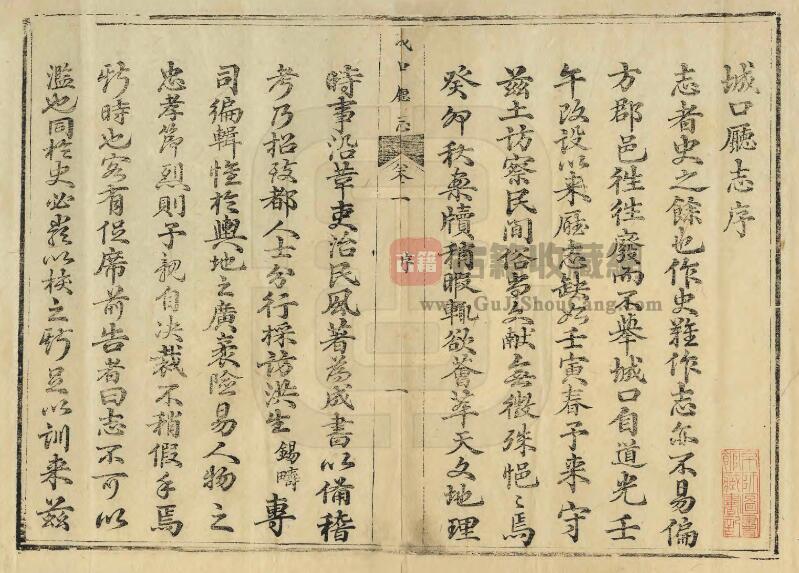 城口廳志序
志者史之餘也作史難作志亦不易偏
方郡邑徃徃廢而不舉城口自道光壬
午改設以来廳志缺如壬寅春予来守
兹土訪察民间俗尚文献無徵殊悒〻焉
癸卯秋案牘稍暇輒欲薈萃天文地理
口廳志
卷一
序
一
時事沿革吏治民風著為成書以備稽
考乃招致都人士分行採訪洪生錫疇専
司編輯惟於輿地之廣袤險易人物之
忠孝節烈則予親自决裁不稍假手焉
斯時也客有促席前告者曰志不可以
濫也同於史必嚴以核之斯足以訓来兹
古籍
古籍收藏
www.GuJiShouCang.com